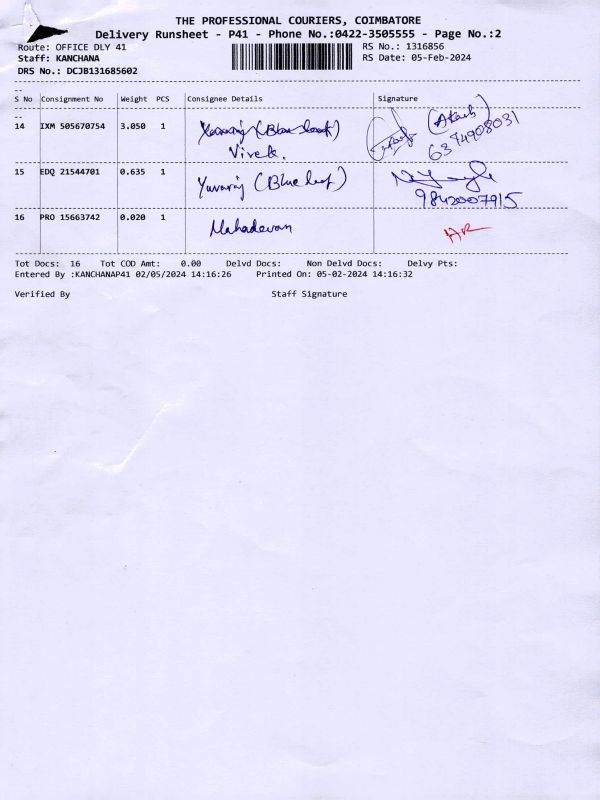 THE PROFESSIONAL COURIERS, COIMBATORE
Delivery Runsheet - P41 - Phone No.:0422-3505555 - Page No.:2
Route: OFFICE DLY 41 RS No.: 1316856
Staff: KANCHANA RS Date: 05-Feb-2024
DRS No.: DCJB131685602
--
S No Consignment No Weight PCS Consignee Details Signature
--
14 IXM 505670754 3.050 1 (Blue leaf) (Akash)
Vivek. 6374908031
15 EDQ 21544701 0.635 1 Yuvaraj (Blue leaf)
9842007915
16 PRO 15663742 0.020 1 Mahadevan
Tot Docs: 16 Tot COD Amt: 0.00 Delvd Docs: Non Delvd Docs: Delvy Pts:
Entered By :KANCHANAP41 02/05/2024 14:16:26 Printed On: 05-02-2024 14:16:32
Verified By Staff Signature